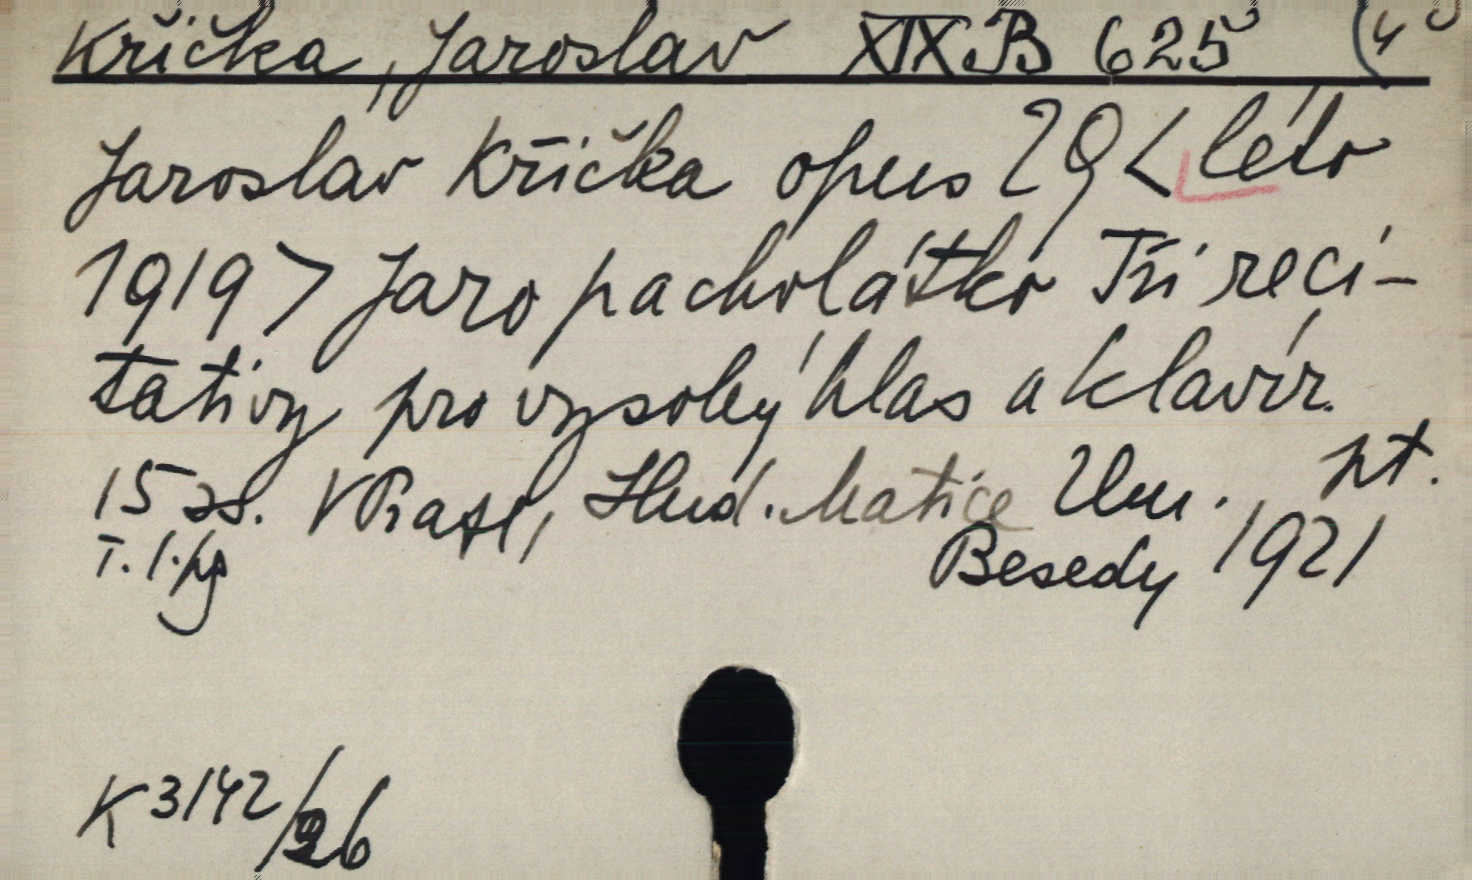 Křička, Jaroslav XIX B 625 (4°
Jaroslav Křička opus 29 <léto
1919> Jaro pacholátko Tři reci-
tativy pro vysoký hlas a klavír.
15 ss. V Praze, Hud. Matice Um. pt.
Besedy 1921
K 3142/26